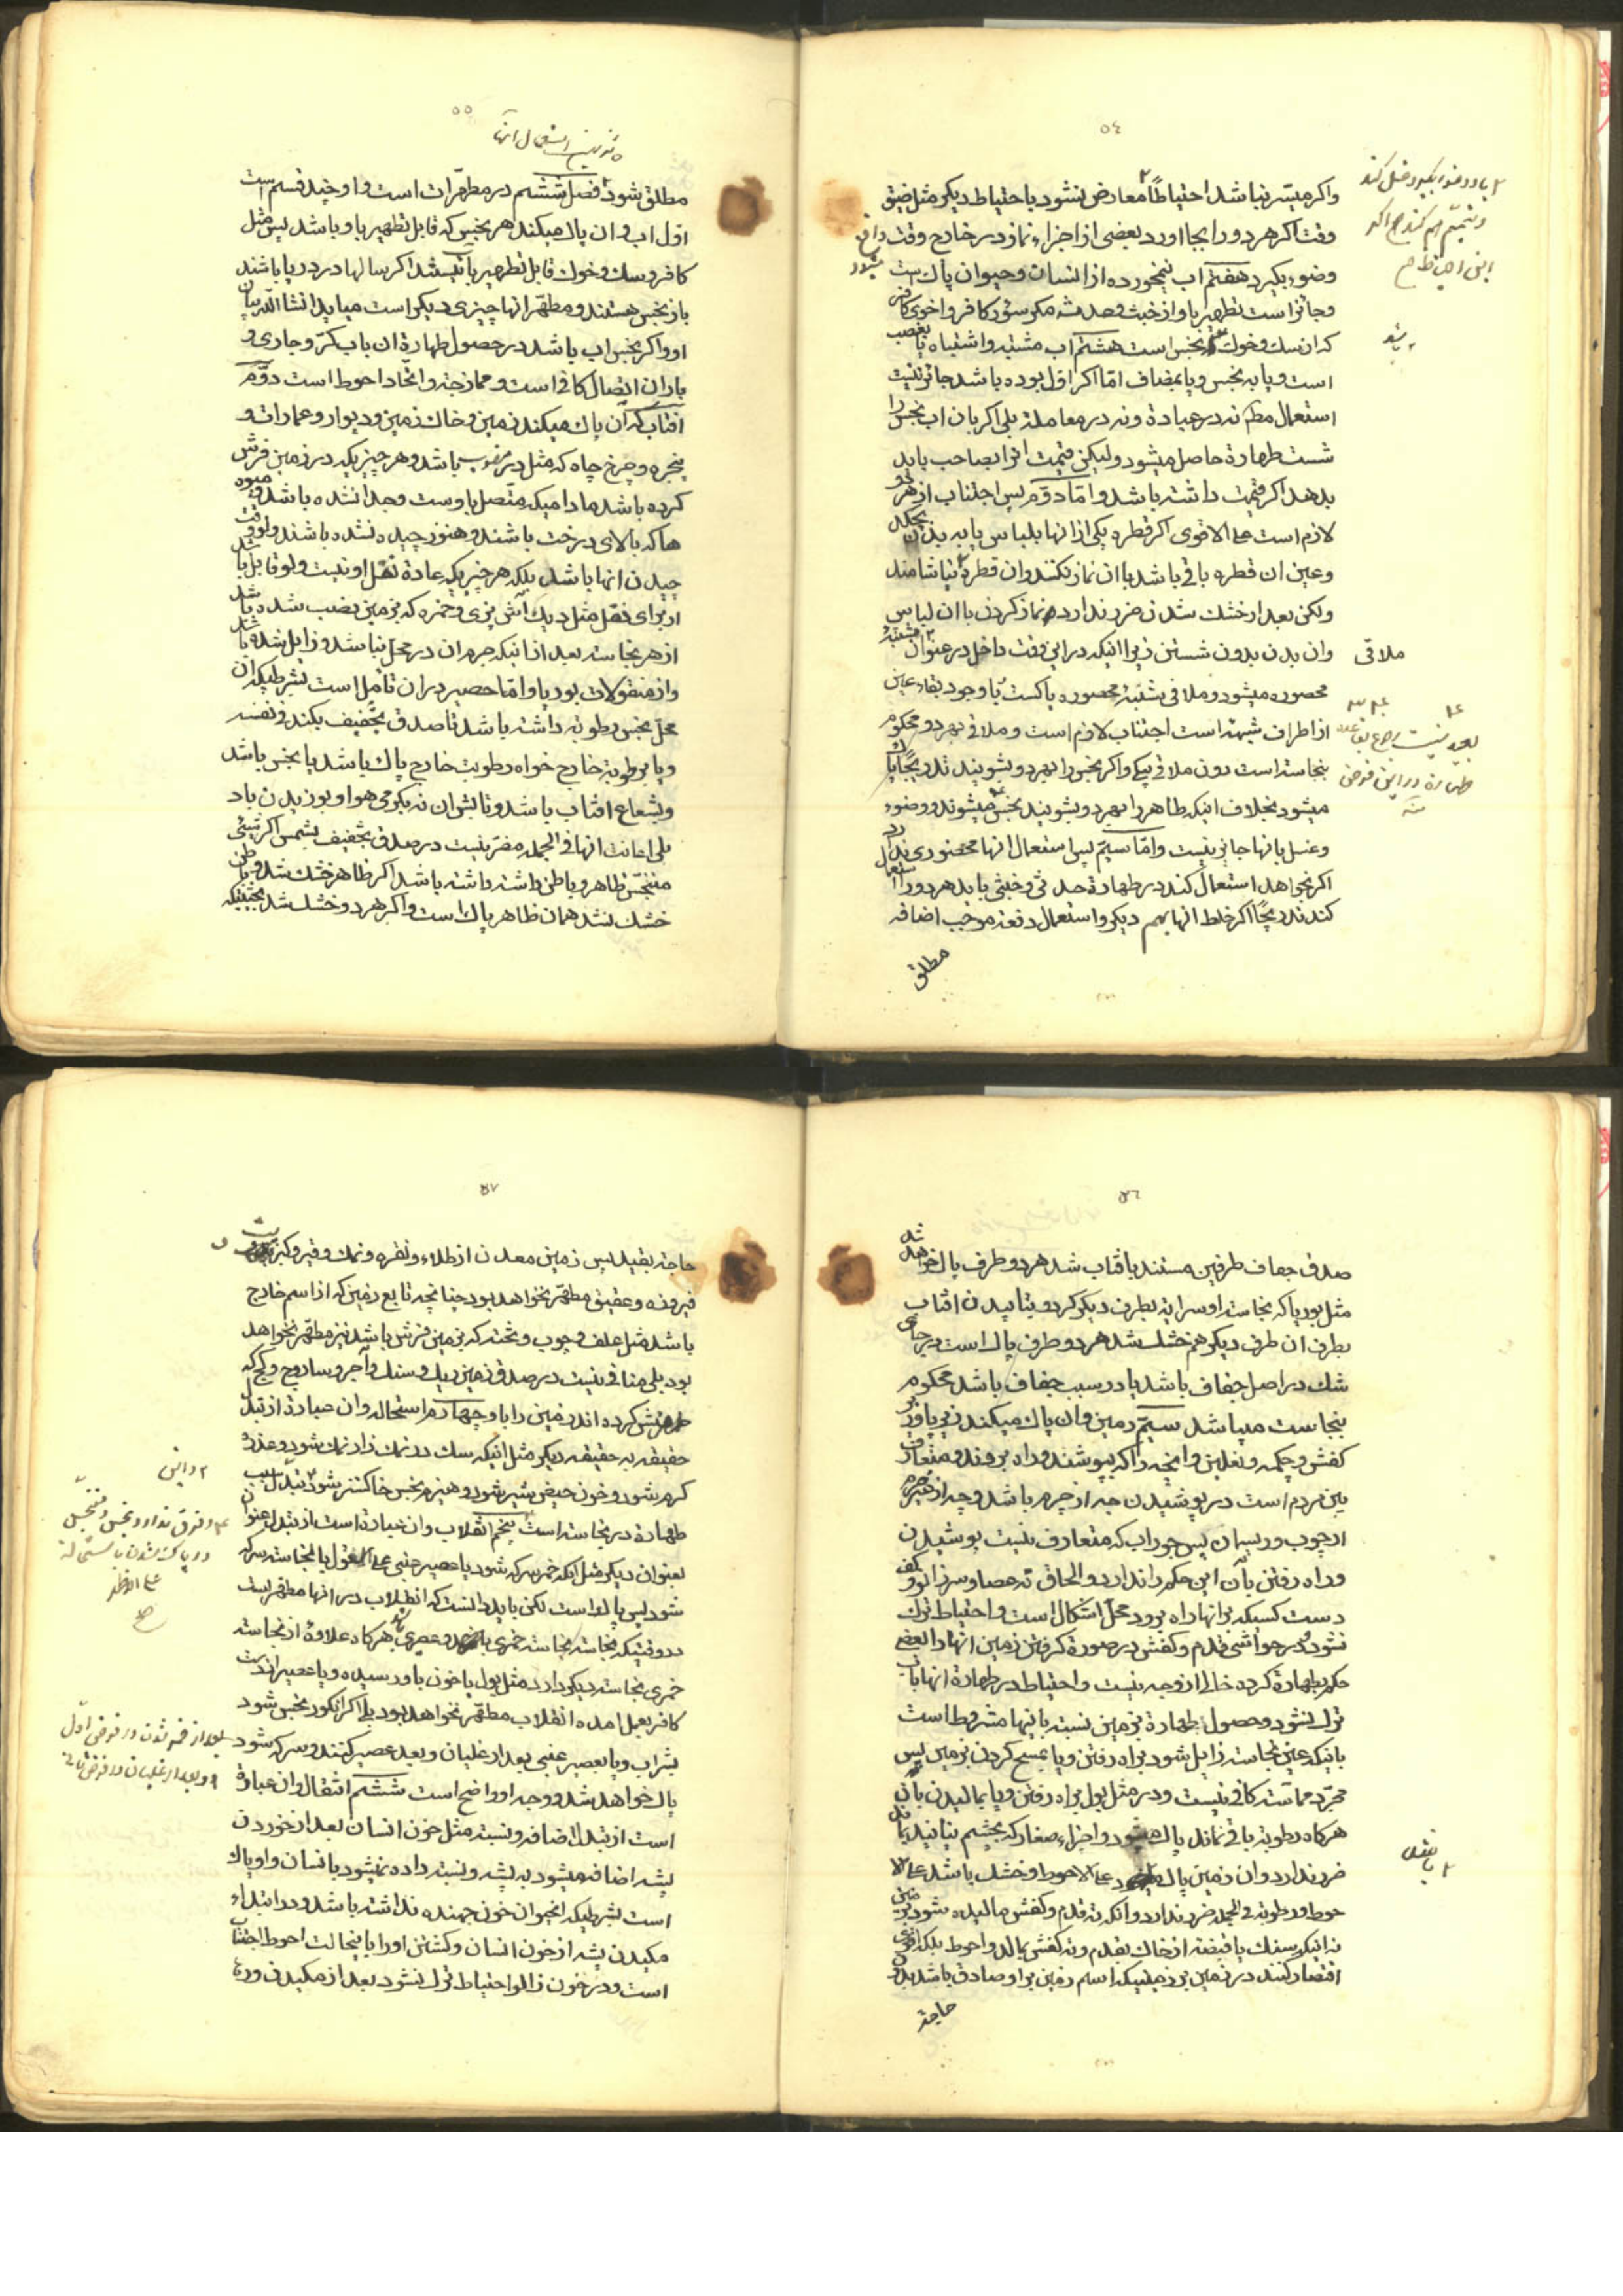 ٥٤
واکر میسر نباشد احتیاطاً معارض نشود با احتیاط دیکر مثل ضیق
وقت اکر هر دو را بجا اورد بعضی از اجزاء نماز در خارج وقت واقع میشود
وضوء بکیرد هفتم اب نیمخورده از انسان و حیوان پاک است
و جائز است تطهیر باو از خبث و حدث مکر سؤر کافر و اخوی کافر
که ان سک و خوک نجس است هشتم اب مشتبه و اشتباه یا بغصب
است و یا به نجس و یا بمضاف امّا اکر اوّل بوده باشد جائز نیست
استعمال مطلقا نه در عبادة و نه در معاملة بلی اکر بان اب نجس را
شست طهارة حاصل میشود ولیکن قیمت انرا بصاحب باید
بدهد اکر قیمت داشته باشد و امّا دوّم پس اجتناب از هر دو
لازم است علی الاقوی اکر قطره یکی از انها بلباس یا به بدن بچکد
و عین ان قطره باقی باشد با ان نماز نکنند و ان قطره نیاشامند
ولکن بعد از خشک شدن ضرر ندارد نماز کردن با ان لباس
و ان بدن بدون شستن زیرا اینکه در این وقت داخل در عنوان مشتبه
محصوره میشود و ملاقی بشبهه محصوره پاکست با وجود بقاء عین
ملاقی
از اطراف شبهه است اجتناب لازم است و ملاقی بهر دو محکوم
بنجاسة است دون ملاقی بیکی و اکر نجس را بهر دو بشویند تدریجاً پاک
میشود بخلاف اینکه طاهر را بهر دو بشویند نجس میشوند و وضوء
و غسل بانها جایز نیست و امّا سیّم پس استعمال انها محضوری ندارد
اکر بخواهد استعمال کند در طهارة حدثی و خبثی باید هر دو را استعمال
کند تدریجاً اکر خلط انها بهم دیکر و استعمال دفعة موجب اضافه
مطلق
٥٥
مطلق نشود فصل ششم در مطهّرات است و او چند قسم است
اوّل اب و ان پاک میکند هر نجس که قابل تطهیر باو باشد پس مثل
کافر و سک و خوک قابل تطهیر باب نیستند اکر سالها در دریا باشند
باز نجس هستند و مطهّر انها چیزی دیکر است میاید انشاالله بیان
او و اکر نجس اب باشد در حصول طهارة ان باب کرّ و جاری و
باران اتصال کافی است و ممازجة و اتّحاد احوط است دوّم
افتاب که ان پاک میکند زمین و خاک زمین و دیوار و عمارات و
پنجره و چرخ چاه که مثل در منصوب باشد و هر چیزیکه در زمین فرش
کرده باشد مادامیکه متّصل باوست و جدا نشده باشد و میوه
ها که بالای درخت باشند و هنوز چیده نشده باشند ولو وقت
چیدن انها باشد بلکه هر چیزیکه عادة نقل او نیست ولو قابل باشد
از برای نقل مثل دیک آش پزی و خمره که بزمین نصب شده باشد
از هر نجاسة بعد از انیکه جرم ان در محلّ نباشد و زایل شده باشد
و از منقولات بوریا و امّا حصیر در ان تأمّل است بشرطیکه ان
محلّ نجس رطوبة داشته باشد تا صدق تجفیف بکند فی نفسه
و یا برطوبة خارج خواه رطوبت خارج پاک باشد یا نجس باشد
و بشعاع افتاب باشد و تابش ان نه بکرمی هوا و بوزیدن باد
بلی اعانت انها فی الجمله مضرّ نیست در صدق تجفیف بشمس اکر شیئی
متنجّس ظاهر و باطن داشته باشد اکر ظاهر خشک شد و باطن
خشک نشد همان ظاهر پاک است و اکر هر دو خشک شد بحیثیتیکه
٥٦
صدق جفاف طرفین مستند بافتاب شد هر دو طرف پاک خواهد شد
مثل بوریا که نجاسة او سرایة بطرف دیکر کرد و بتابیدن افتاب
بطرف ان طرف دیکر هم خشک شد هر دو طرف پاک است در جائی
شک در اصل جفاف باشد یا در سبب جفاف باشد محکوم
بنجاست میباشد سیّم زمین و ان پاک میکند زیر پا و زیر
کفش و چکمه و نعلین و انچه را که بپوشند و راه بروند و متعارف
بین مردم است در پوشیدن چه از چرم باشد و چه از غیر چرم
از چوب و ریسمان پس جوراب که متعارف نیست پوشیدن
و راه رفتن بآن این حکم را ندارد و الحاق ته عصا و سر زانو و کف
دست کسیکه بر انها راه برود محلّ اشکال است و احتیاط ترک
نشود و در حواشی قدم و کفش در صورة کرفتن زمین انها را بعضی
حکم بطهارة کرده خالی از وجه نیست و احتیاط در طهارة انها باب
ترک نشود و حصول طهارة بزمین نسبة بانها مشروط است
بانیکه عین نجاسة زایل شود براه رفتن و یا بمسح کردن بزمین پس
مجرّد مماسّة کافی نیست و در مثل بول براه رفتن و یا بمالیدن بان
هرکاه رطوبة باقی نماند پاک میشود و اجزاء صغار که بچشم نیایند بماند
ضرر ندارد و ان زمین پاک باشد علی الاحوط و خشک باشد علی الا
حوط و رطوبة فی الجمله ضرر ندارد و انکه ته قدم و کفش مالیده شود بزمین
نه انیکه سنک یا قبضه از خاک بقدم و ته کفش بمالد و احوط بلکه اقوی
اقتصار کنند در زمین بر زمینیکه اسم زمین بر او صادق باشد بدون
حاجة
٥٧
حاجة بقید پس زمین معدن از طلاء و نقره و نمک و قیر و کبریت و
فیروزه و عقیق مطهّر نخواهد بود چنانچه تابع زمین که از اسم خارج
باشد مثل علف و چوب و تخته که بزمین فرش باشد نیز مطهّر نخواهد
بود بلی منافی نیست در صدق زمین ریک و سنک و آجر و ساروج و کچ که
فرش کرده اند زمین را با و چهارم استحاله و ان عبارة از تبدّل
حقیقة به حقیقة دیکر مثل انیکه سک در نمک زار نمک شود و عذره
کرم شود و خون حیض شیر شود و هیزم نجس خاکستر شود تبدّل سبب
طهارة در نجاسة است پنجم انقلاب و ان عبارة است از تبدّل عنوان
بعنوان دیکر مثل انکه خمر سرکه شود یا عصیر عنبی علی القول بالنجاسة سرکه
شود پس پاک است لکن باید دانست که انقلاب در انها مطهّر است
در وقتیکه نجاسة نجاسة خمری و عصیری باشد هرکاه علاوة از نجاسة
خمری نجاسة دیکر دارد مثل بول یا خون باو رسیده و یا عصیر از دست
کافر بعمل امده انقلاب مطهّر نخواهد بود بلی اکر انکور نجس شود
بشراب و یا بعصیر عنبی بعد از غلیان و بعد عصیر کنند و سرکه شود
پاک خواهد شد و وجه او واضح است ششم انتقال و ان عبارة
است از تبدّل اضافه و نسبة مثل خون انسان بعد از خوردن
پشه اضافه میشود به پشه و نسبة داده نمیشود بانسان و او پاک
است بشرطیکه انحیوان خون جهنده نداشته باشد و در ابتداء
مکیدن پشه از خون انسان و کشتن او را باینحالت احوط اجتناب
است و در خون زالو احتیاط ترک نشود بعد از مکیدن و در